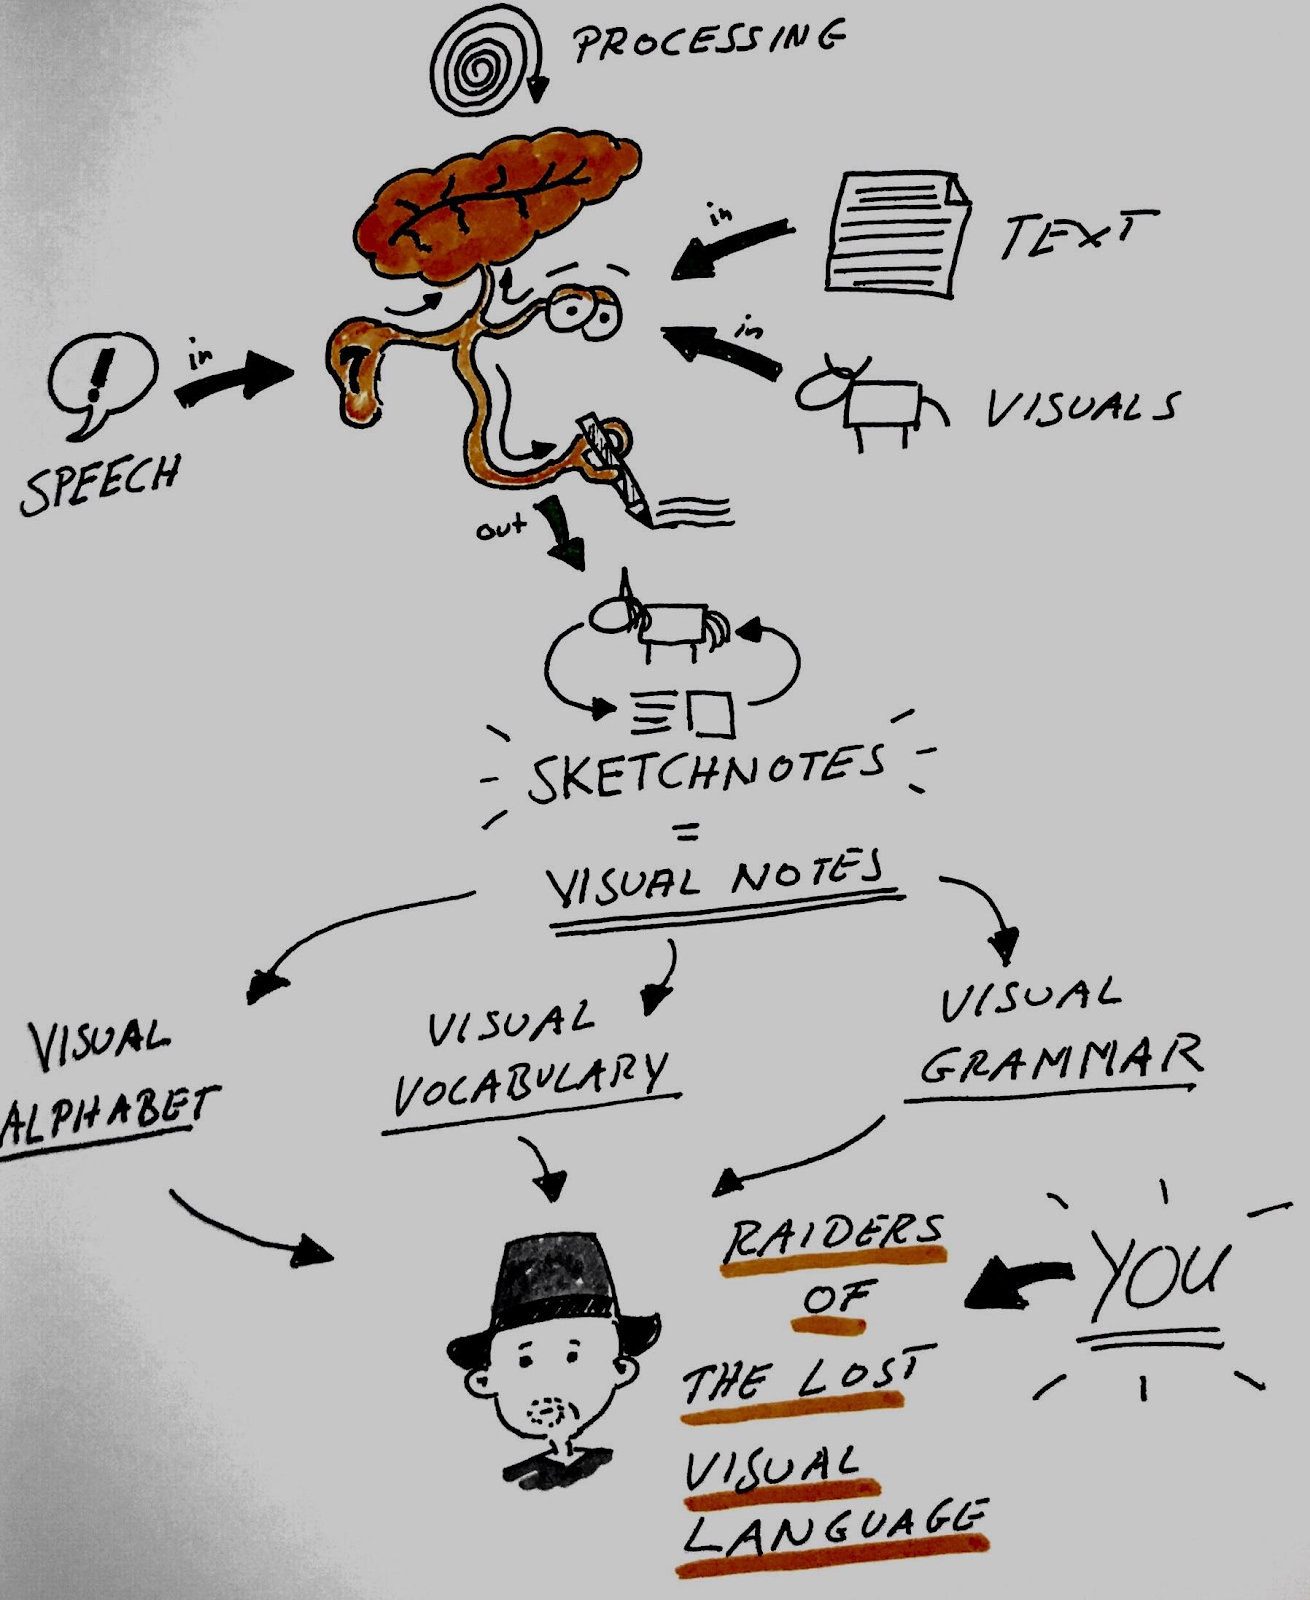 PROCESSING
in
TEXT
in
in
VISUALS
SPEECH
out
SKETCHNOTES
=
VISUAL NOTES
VISUAL
ALPHABET
VISUAL
VOCABULARY
VISUAL
GRAMMAR
RAIDERS
OF
THE LOST
VISUAL
LANGUAGE
YOU